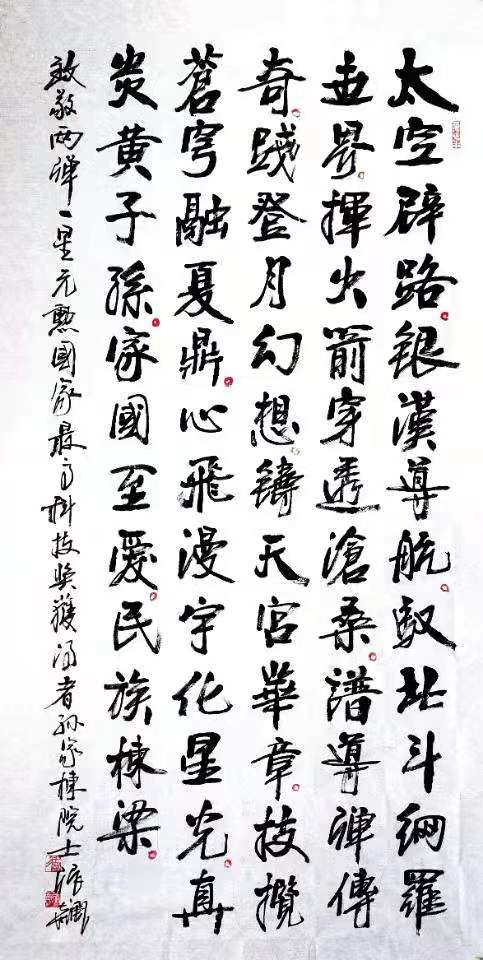 太空辟路银漢導航驭北斗網羅
世界揮火箭穿透滄桑譜導彈傳
奇蹟登月幻想鑄天宫華章技攬
蒼穹融夏鼎心飛漫宇化星光真
炎黄子孫家國至愛民族棟梁
致敬两弹一星元勳國家最高科技奖獲得者孙家棟院士